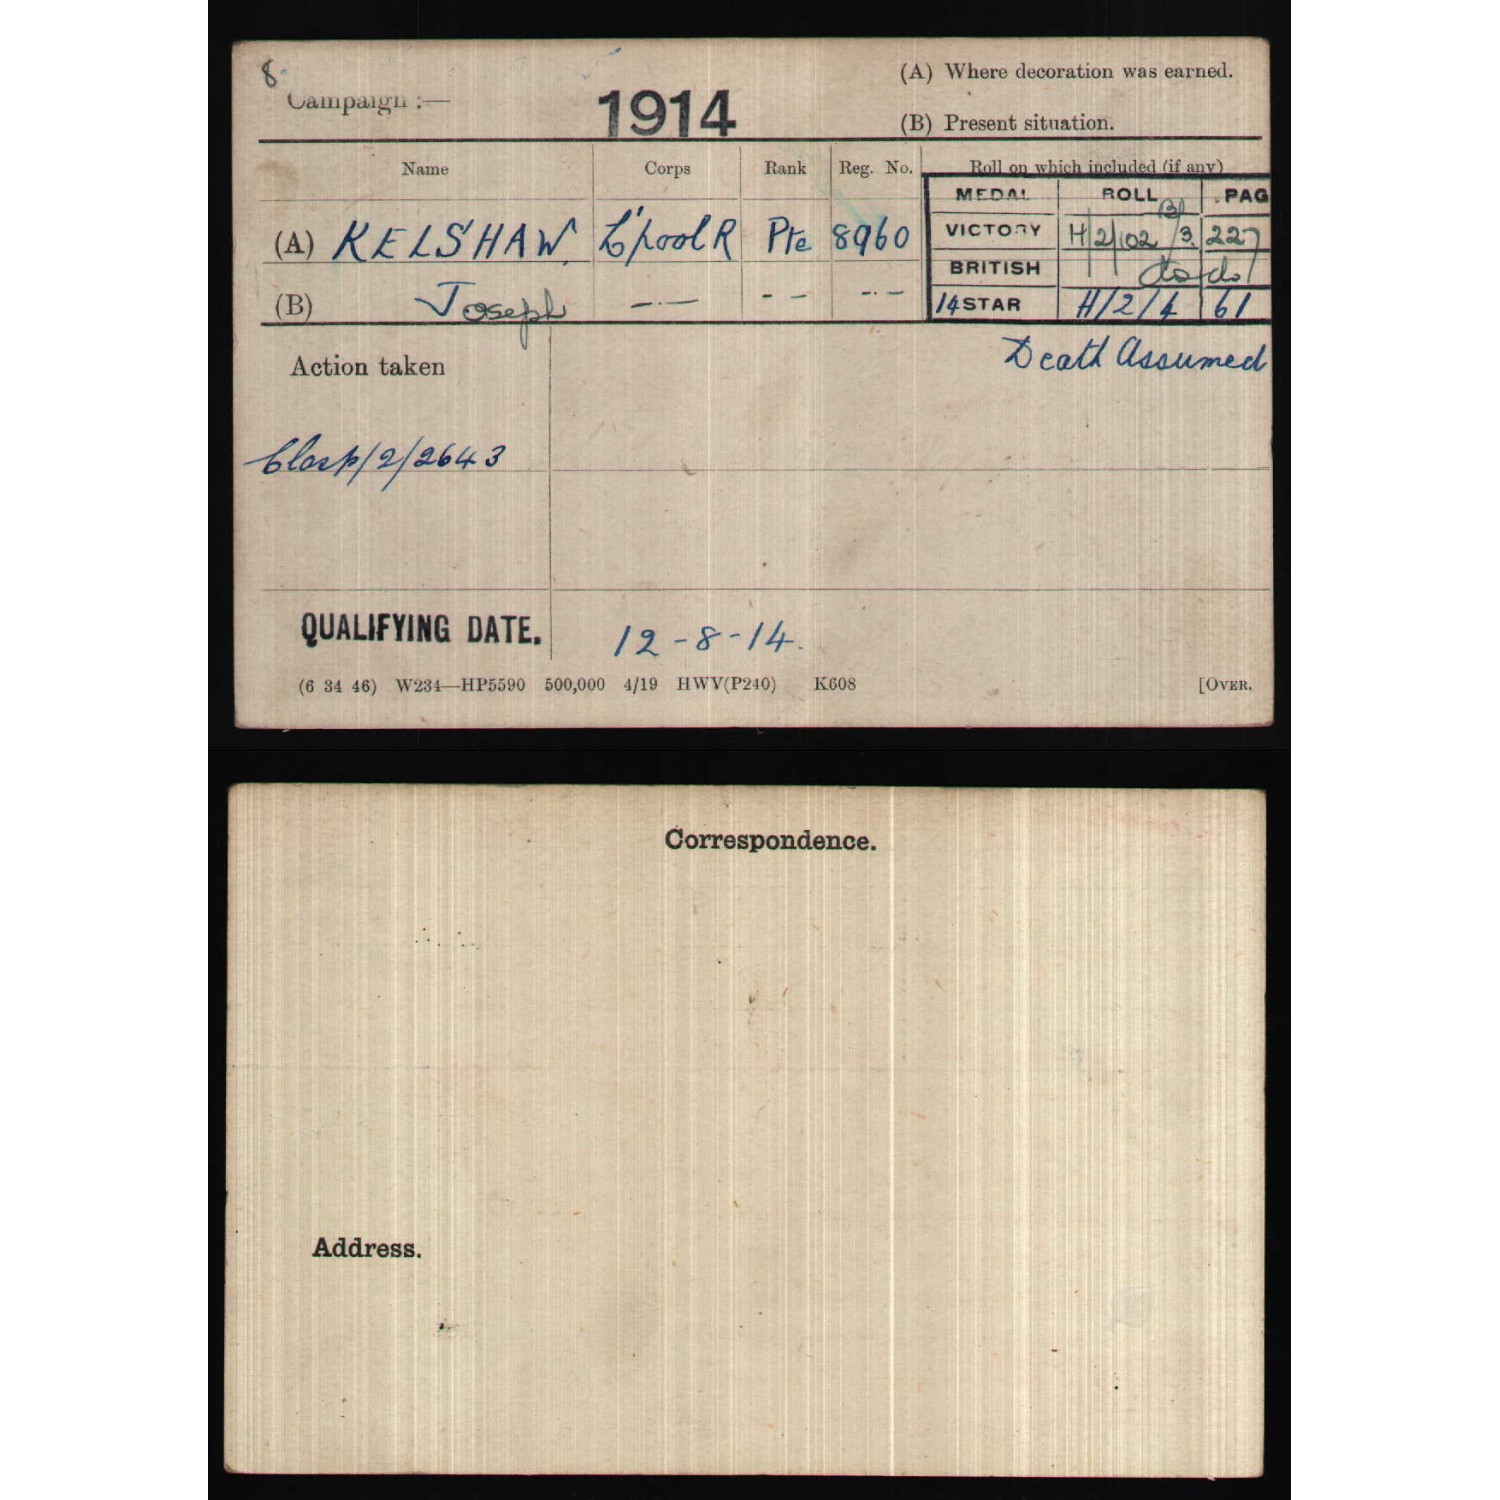 8.
Campaign :—
1914
(A) Where decoration was earned.
(B) Present situation.
Name Corps Rank Reg. No. Roll on which included (if any)
MEDAL ROLL PAG
(A) KELSHAW. L'pool R Pte 8960 VICTORY H/2/102 B1/3. 227
BRITISH do do
(B) Joseph —·— – – –·– 14 STAR H/2/4 61
Action taken
Death Assumed
Clasp/2/2643
QUALIFYING DATE. 12-8-14.
(6 34 46) W234—HP5590 500,000 4/19 HWV(P240) K608 [OVER.
Correspondence.
Address.